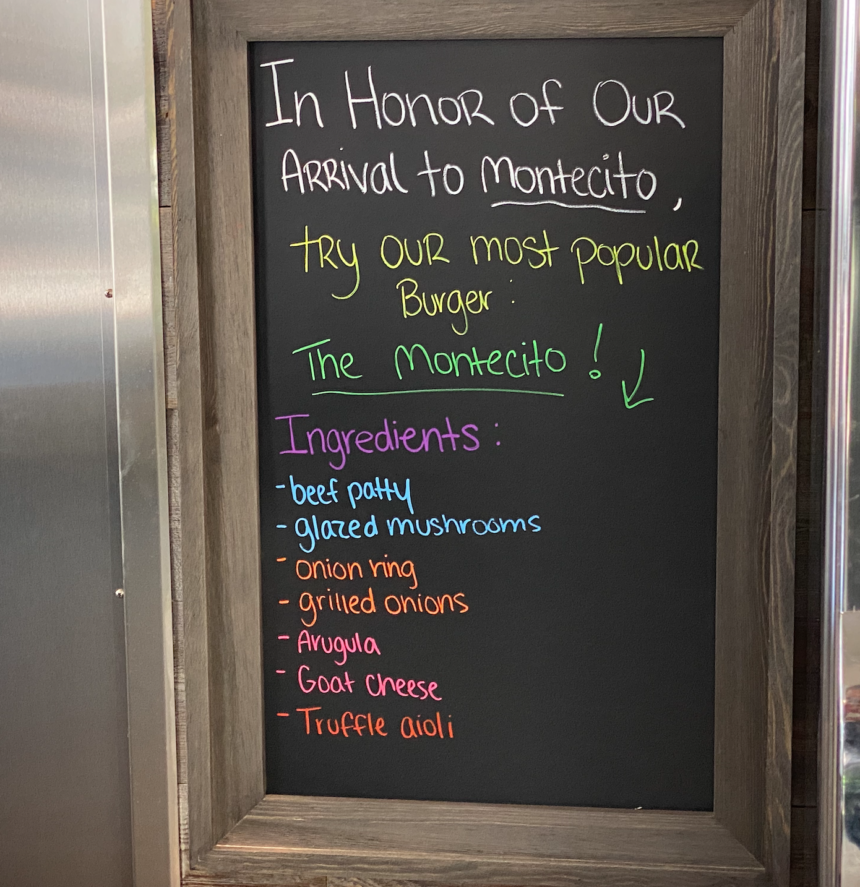 In Honor of Our
Arrival to Montecito,
try our most popular
Burger:
The Montecito!
Ingredients:
- beef patty
- glazed mushrooms
- onion ring
- grilled onions
- Arugula
- Goat cheese
- Truffle aioli